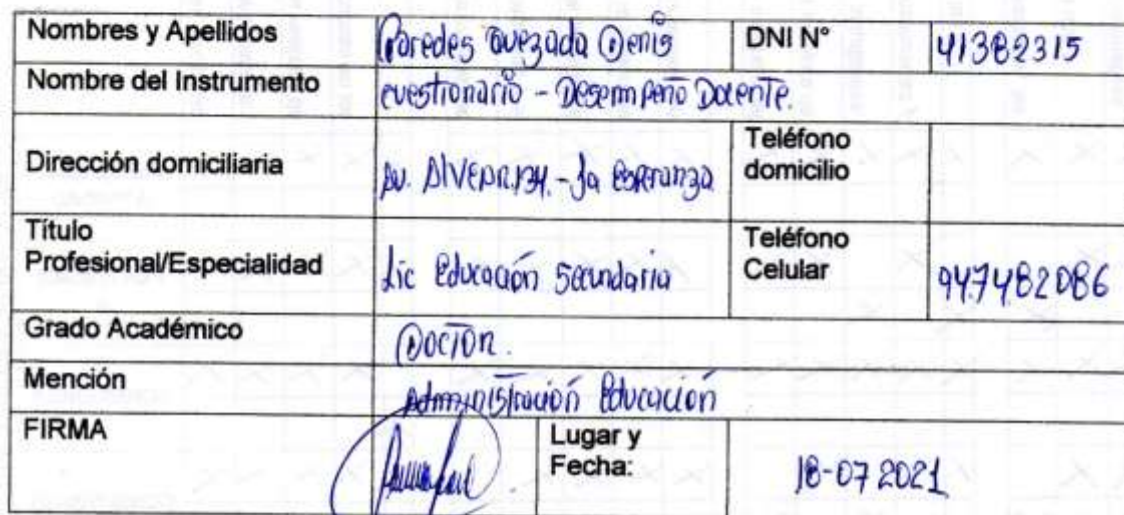 Nombres y Apellidos Paredes Quezada Denis DNI N° 41382315
Nombre del Instrumento cuestionario - Desempeño Docente.
Dirección domiciliaria Av. - La Esperanza Teléfono domicilio
Título Profesional/Especialidad Lic Educación Secundaria Teléfono Celular 947482086
Grado Académico Doctor.
Mención Administración Educación
FIRMA Lugar y Fecha: 18-07 2021